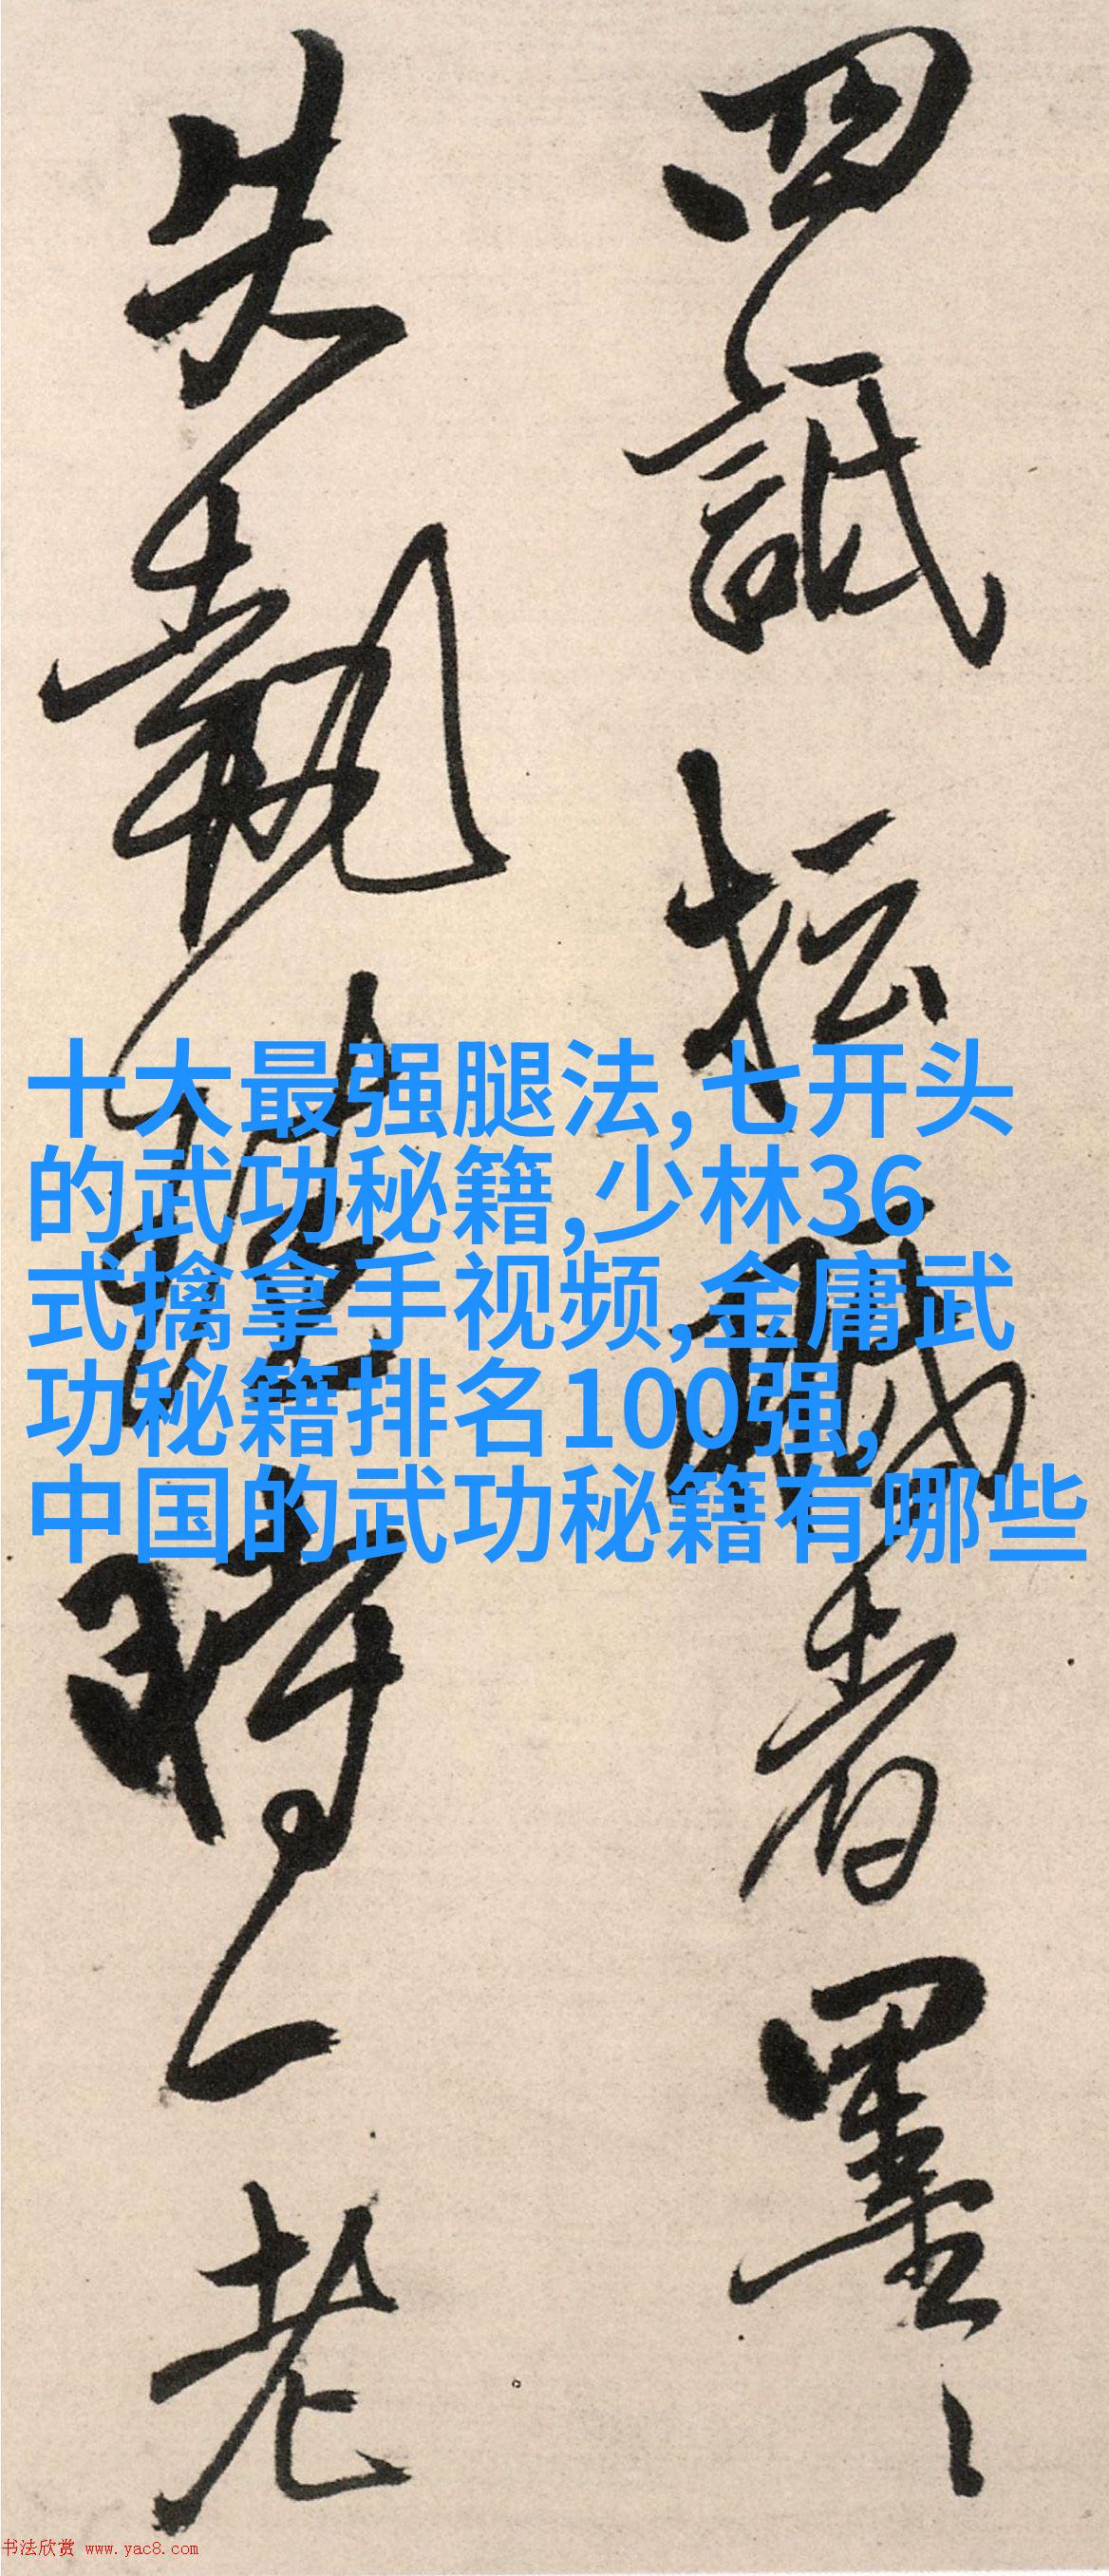 四詆抎
者墨
失執
時一老
十大最强腿法,七开头
的武功秘籍,少林36
式擒拿手视频,金庸武
功秘籍排名100强,
中国的武功秘籍有哪些
书法欣赏 www.yac8.com